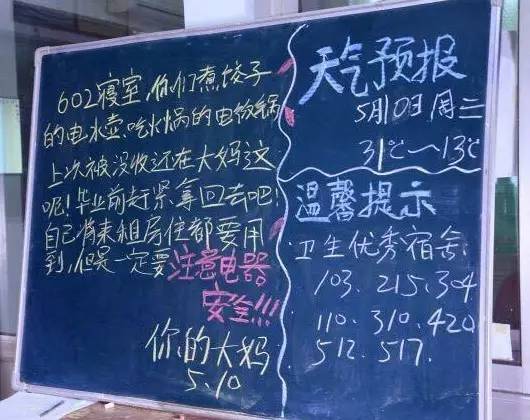 602寝室,你们煮饺子
的电水壶,吃火锅的电饭锅
上次被没收还在大妈这
呢!毕业前赶紧拿回去吧!
自己将来租房住都要用
到,但是一定要注意电器
安全!!!
你的大妈
5.10
天气预报
5月10日周三
31℃~13℃
温馨提示
卫生优秀宿舍
103.215.304
110.310.420
512.517.